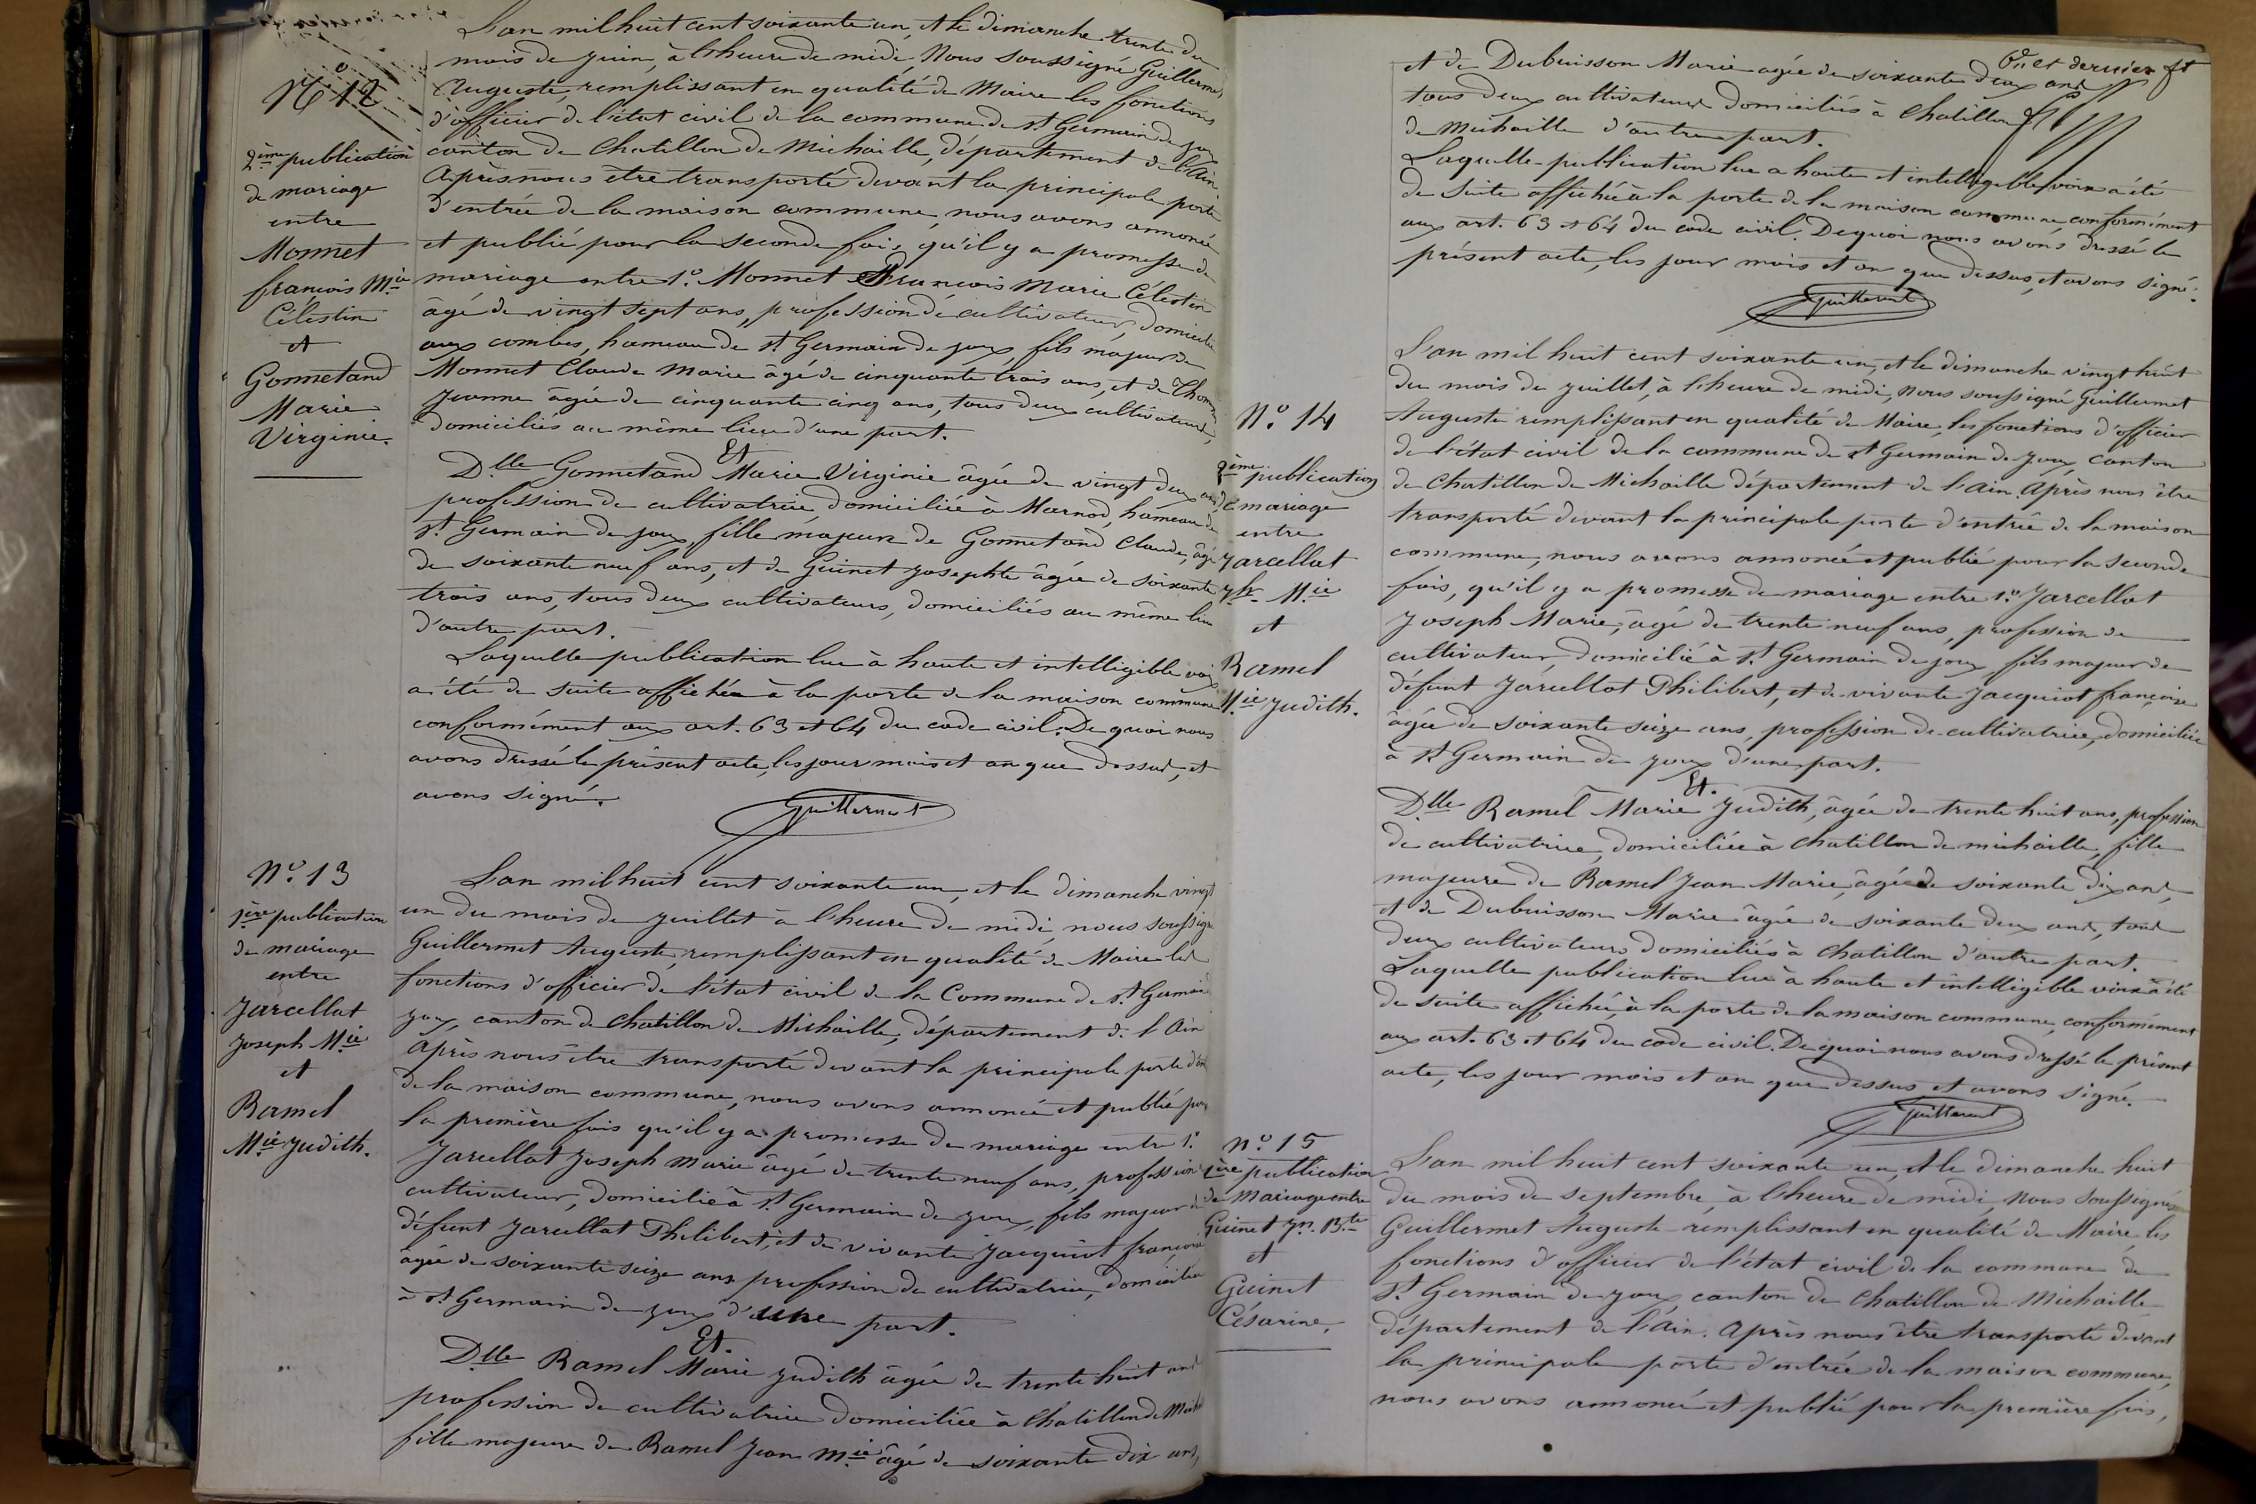 N° 12
2ème publication
de mariage
entre
Monnet
françois Mie
Célestin
et
Gonnetand
Marie
Virginie.
L'an mil huit cent soixante un, et le dimanche trente du
mois de juin, à l'heure de midi, Nous soussigné Guillermet
Auguste, remplissant en qualité de Maire les fonctions
d'officier de l'état civil de la commune de St Germain de joux
canton de Chatillon de Michaille, département de l'Ain,
Après nous être transporté devant la principale porte
d'entrée de la maison commune, nous avons annoncé
et publié pour la seconde fois, qu'il y a promesse de
mariage entre 1° Monnet François Marie Célestin
âgé de vingt sept ans, profession de cultivateur, domicilié
aux combes, hameau de St Germain de joux, fils majeur de
Monnet Claude Marie âgé de cinquante trois ans, et de
Jeanne âgée de cinquante cinq ans, tous deux cultivateurs,
domiciliés au même lieu d'une part.
Et
Dlle Gonnetand Marie Virginie âgée de vingt deux ans
profession de cultivatrice, domiciliée à Marnod, hameau de
St Germain de joux, fille majeure de Gonnetand Claude, âgé
de soixante neuf ans, et de Guinet Josephte âgée de soixante
trois ans, tous deux cultivateurs, domiciliés au même lieu
d'autre part.
Laquelle publication lue à haute et intelligible voix
a été de suite affichée à la porte de la maison commune
conformément aux art. 63 et 64 du code civil. De quoi nous
avons dressé le présent acte, les jour mois et an que dessus, et
avons signé.
Guillermet
N° 13
1ère publication
de mariage
entre
Jarcellat
Joseph Mie
et
Ramel
Mie Judith.
L'an mil huit cent soixante un, et le dimanche vingt
un du mois de juillet à l'heure de midi, nous soussigné
Guillermet Auguste, remplissant en qualité de Maire les
fonctions d'officier de l'état civil de la Commune de St Germain
joux, canton de Chatillon de Michaille, département de l'Ain
Après nous être transporté devant la principale porte d'en
de la maison commune, nous avons annoncé et publié pour
la première fois qu'il y a promesse de mariage entre 1°
Jarcellat Joseph Marie âgé de trente neuf ans, profession
cultivateur, domicilié à St Germain de joux, fils majeur de
défunt Jarcellat Philibert, et de vivante Jacquiot françoise
âgée de soixante seize ans profession de cultivatrice, domiciliée
à St Germain de joux d'une part.
Et.
Dlle Ramel Marie Judith âgée de trente huit ans
profession de cultivatrice domiciliée à Chatillon de Mich
fille majeure de Ramel Jean Mie âgé de soixante dix ans,
et dernier ft
et de Dubuisson Marie âgée de soixante deux ans
tous deux cultivateurs domiciliés à Chatillon
de Michaille d'autre part.
Laquelle publication lue a haute et intelligible voix a été
de suite affichée à la porte de la maison commune, conformément
aux art. 63 et 64 du code civil. De quoi nous avons dressé le
présent acte, les jour mois et an que dessus, et avons signé.
Guillermet
N° 14
2ème publication
de mariage
entre
Jarcellat
Jh. Mie
et
Ramel
Mie Judith.
L'an mil huit cent soixante un, et le dimanche vingt huit
du mois de juillet, à l'heure de midi, nous soussigné Guillermet
Auguste remplissant en qualité de Maire, les fonctions d'officier
de l'état civil de la commune de St Germain de joux, canton
de Chatillon de Michaille département de l'Ain, Après nous être
transporté devant la principale porte d'entrée de la maison
commune, nous avons annoncé et publié pour la seconde
fois, qu'il y a promesse de mariage entre 1° Jarcellat
Joseph Marie, âgé de trente neuf ans, profession de
cultivateur, domicilié à St Germain de joux fils majeur de
défunt Jarcellat Philibert, et de vivante Jacquiot françoise
âgée de soixante seize ans, profession de cultivatrice, domiciliée
à St Germain de joux d'une part.
Et.
Dlle Ramel Marie Judith, âgée de trente huit ans, profession
de cultivatrice, domiciliée à Chatillon de michaille, fille
majeure de Ramel Jean Marie, âgé de soixante dix ans,
et de Dubuisson Marie âgée de soixante deux ans, tous
deux cultivateurs domiciliés à Chatillon d'autre part.
Laquelle publication lue à haute et intelligible voix a été
de suite affichée, à la porte de la maison commune, conformément
aux art. 63 et 64 du code civil. De quoi nous avons dressé le présent
acte, les jour mois et an que dessus et avons signé.
Guillermet
N° 15
1ère publication
de Mariage entre
Guinet Jn. Bte
et
Guinet
Césarine.
L'an mil huit cent soixante un, et le dimanche huit
du mois de septembre, à l'heure de midi, Nous soussigné
Guillermet Auguste remplissant en qualité de Maire, les
fonctions d'officier de l'état civil de la commune de
St Germain de joux, canton de Chatillon de Michaille
département de l'Ain. Après nous être transporté devant
la principale porte d'entrée de la maison commune,
nous avons annoncé et publié pour la première fois,